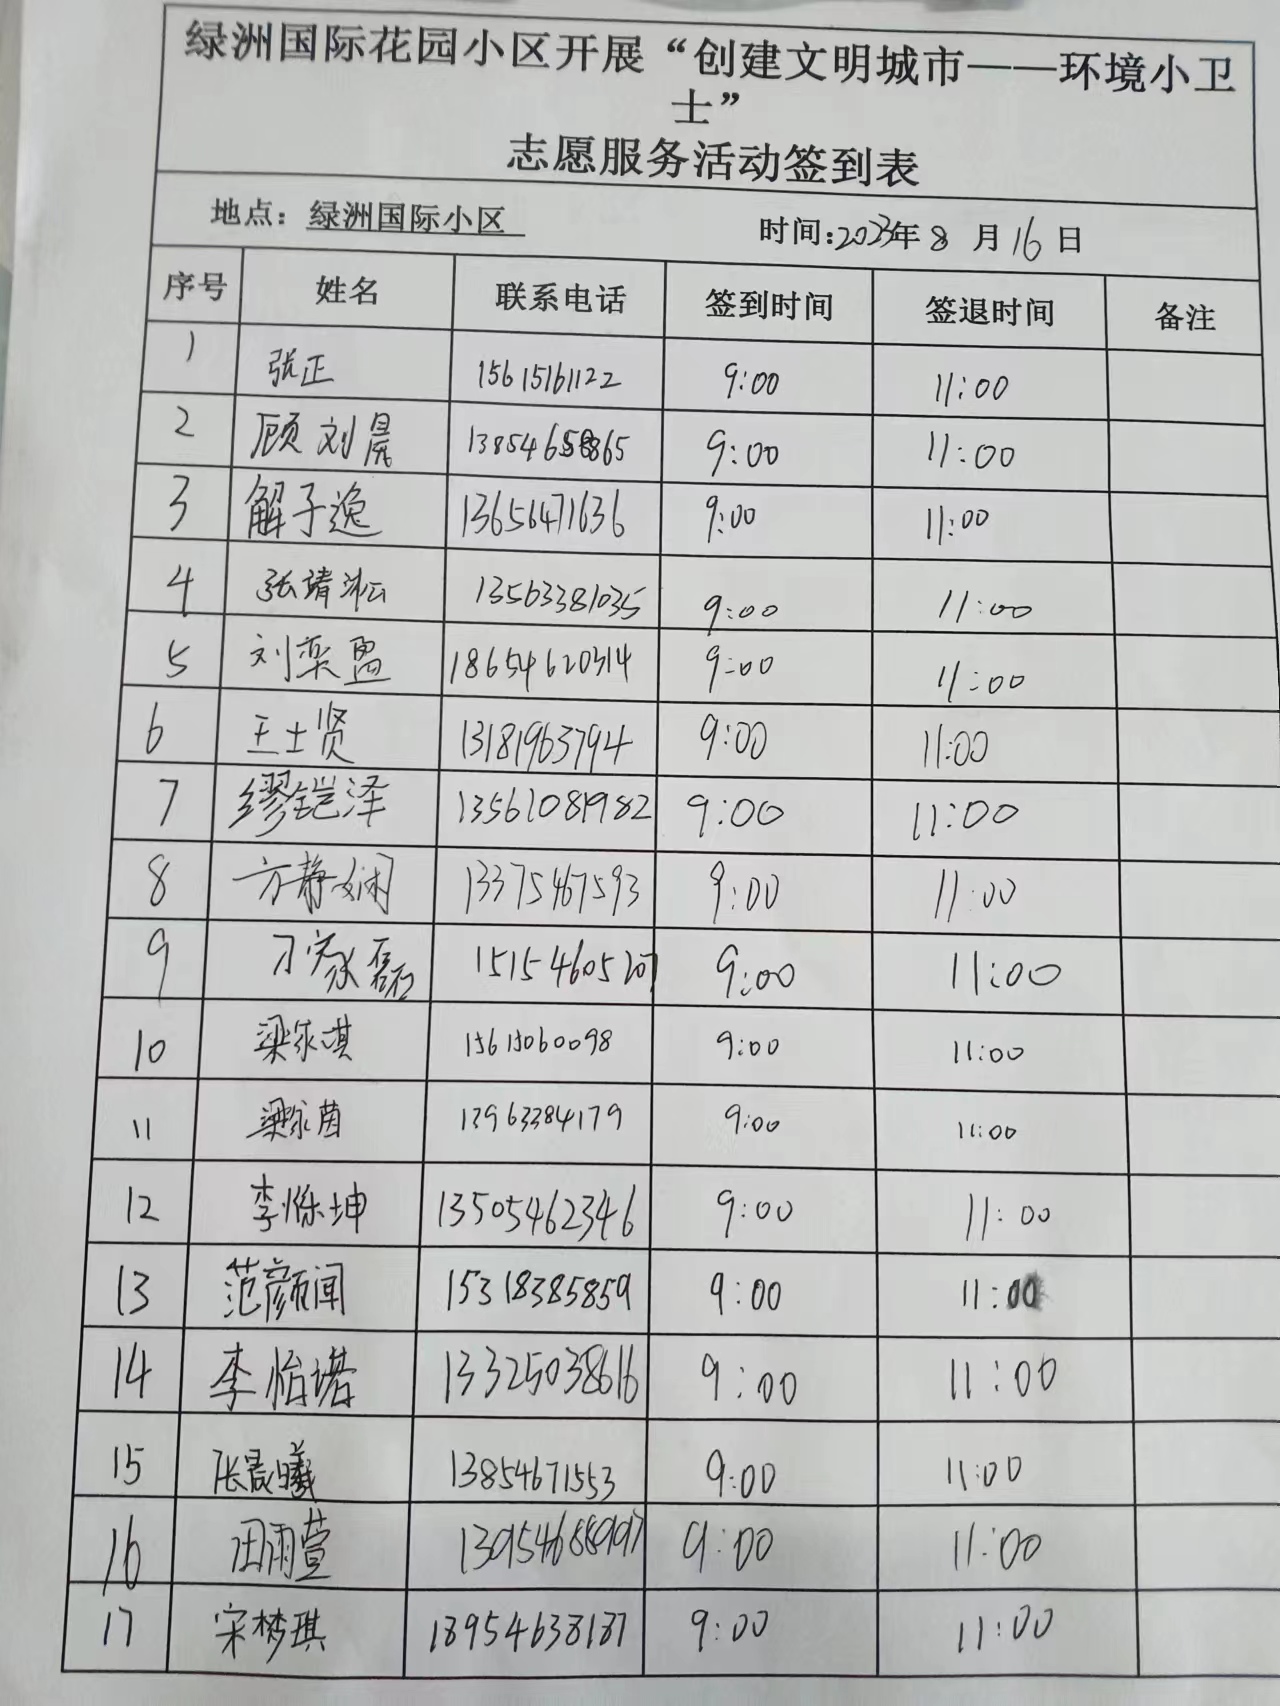 绿洲国际花园小区开展“创建文明城市——环境小卫
士”
志愿服务活动签到表
地点：绿洲国际小区 时间：2023年8月16日
序号 姓名 联系电话 签到时间 签退时间 备注
1 张正 15615161122 9:00 11:00
2 顾刘晨 9:00 11:00
3 解子逸 13656471636 9:00 11:00
4 张靖淞 13563381035 9:00 11:00
5 刘栾盈 18654620314 9:00 11:00
6 王士贤 13181963794 9:00 11:00
7 缪铠泽 13561081982 9:00 11:00
8 方静娴 13375467593 9:00 11:00
9 刁家磊 15154605207 9:00 11:00
10 梁家琪 15615060098 9:00 11:00
11 梁家茵 13963384179 9:00 11:00
12 李烁坤 13505462346 9:00 11:00
13 范颜闻 15318385859 9:00 11:00
14 李怡诺 13325038616 9:00 11:00
15 张晨曦 13854671553 9:00 11:00
16 田雨萱 13954688997 9:00 11:00
17 宋梦琪 18954638187 9:00 11:00